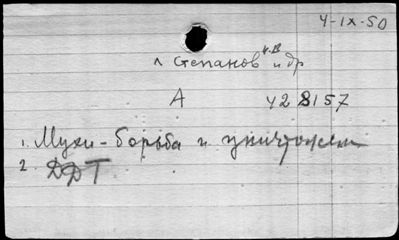 4-IX-50
л Степанов к.В и др
А 428157
1. Мухи - борьба и уничтожен
2 ДДТ